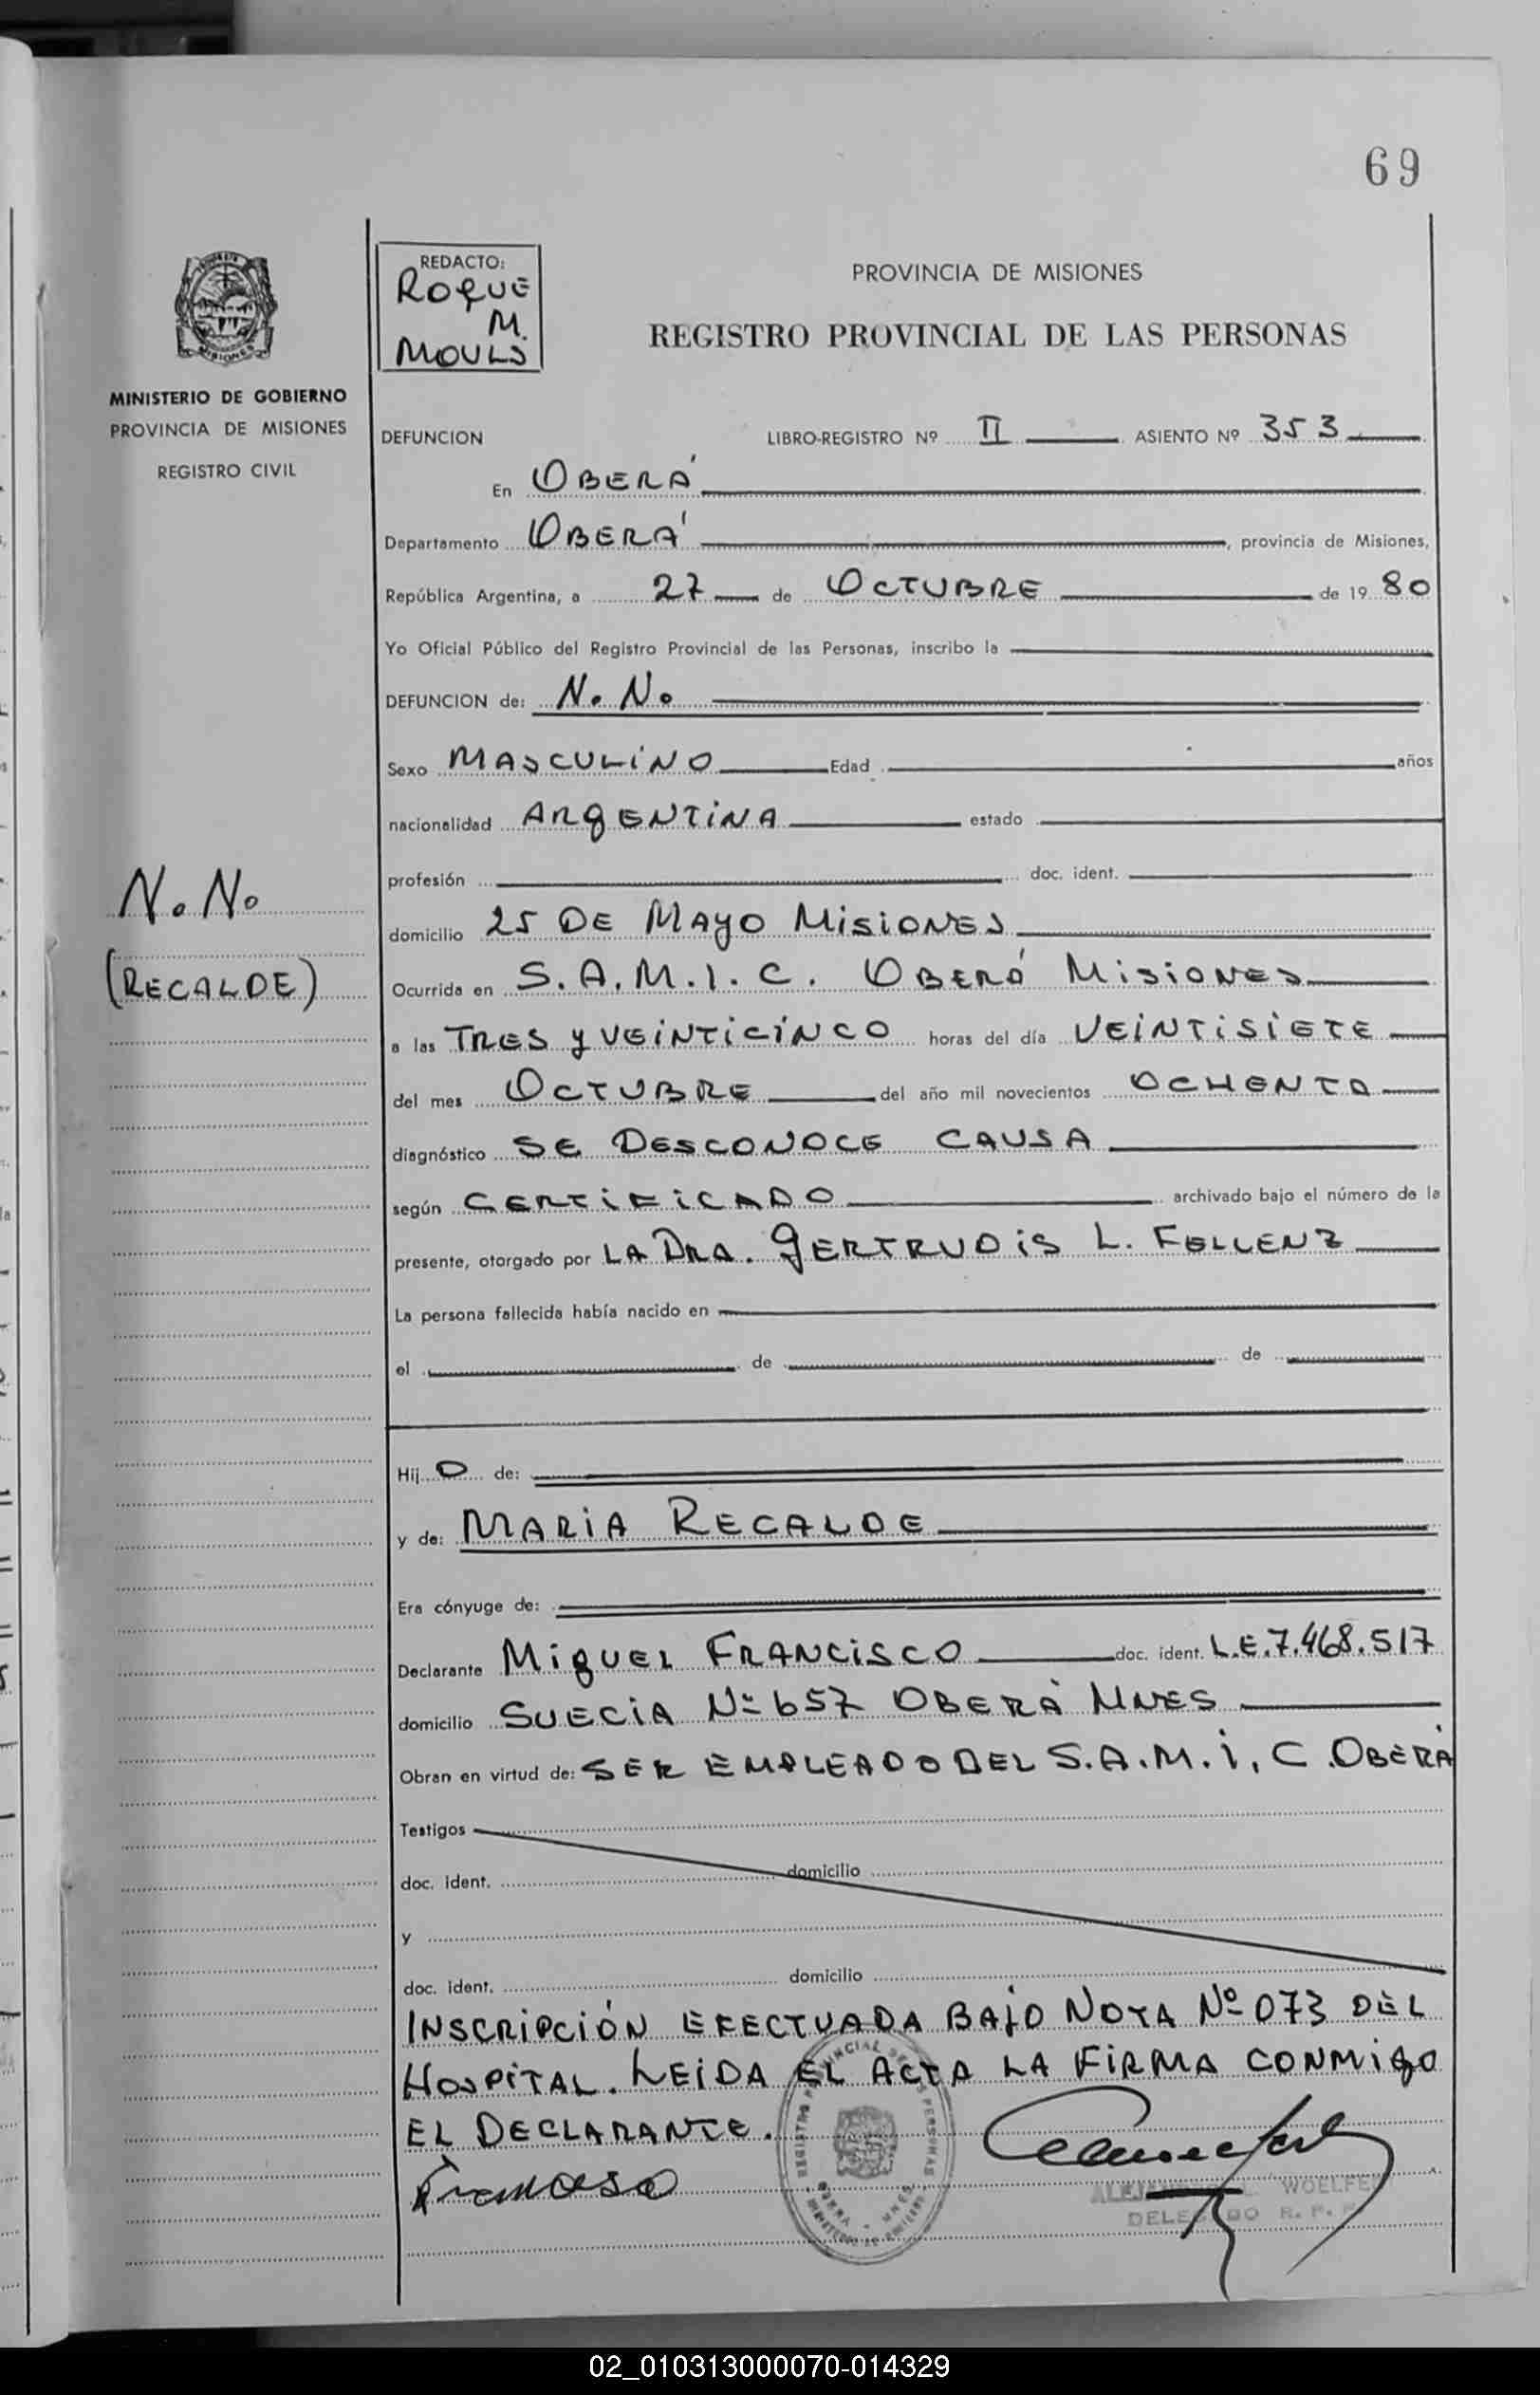 69
REDACTO:
ROQUE
M.
MOULS
PROVINCIA DE MISIONES
REGISTRO PROVINCIAL DE LAS PERSONAS
MISIONES
MINISTERIO DE GOBIERNO
PROVINCIA DE MISIONES
REGISTRO CIVIL
DEFUNCION LIBRO-REGISTRO Nº II ASIENTO Nº 353
En OBERÁ
Departamento OBERÁ, provincia de Misiones,
República Argentina, a 27 de OCTUBRE de 1980
Yo Oficial Público del Registro Provincial de las Personas, inscribo la
DEFUNCION de: N. N.
Sexo MASCULINO Edad años
nacionalidad ARGENTINA estado
profesión doc. ident.
N. N.
(RECALDE)
domicilio 25 DE MAYO MISIONES
Ocurrida en S.A.M.I.C. OBERÁ MISIONES
a las TRES Y VEINTICINCO horas del día VEINTISIETE
del mes OCTUBRE del año mil novecientos OCHENTA
diagnóstico SE DESCONOCE CAUSA
según CERTIFICADO archivado bajo el número de la
presente, otorgado por LA DRA. GERTRUDIS L. FELLENZ
La persona fallecida había nacido en
el de de
Hij O de:
y de: MARIA RECALDE
Era cónyuge de:
Declarante MIGUEL FRANCISCO doc. ident. L.E.7.468.517
domicilio SUECIA Nº 657 OBERÁ MNES
Obran en virtud de: SER EMPLEADO DEL S.A.M.I.C. OBERÁ
Testigos
doc. ident. domicilio
y
doc. ident. domicilio
INSCRIPCIÓN EFECTUADA BAJO NOTA Nº 073 DEL
HOSPITAL. LEIDA EL ACTA LA FIRMA CONMIGO
EL DECLARANTE.
WOELFE
DELEGADO R. P.
02_010313000070-014329